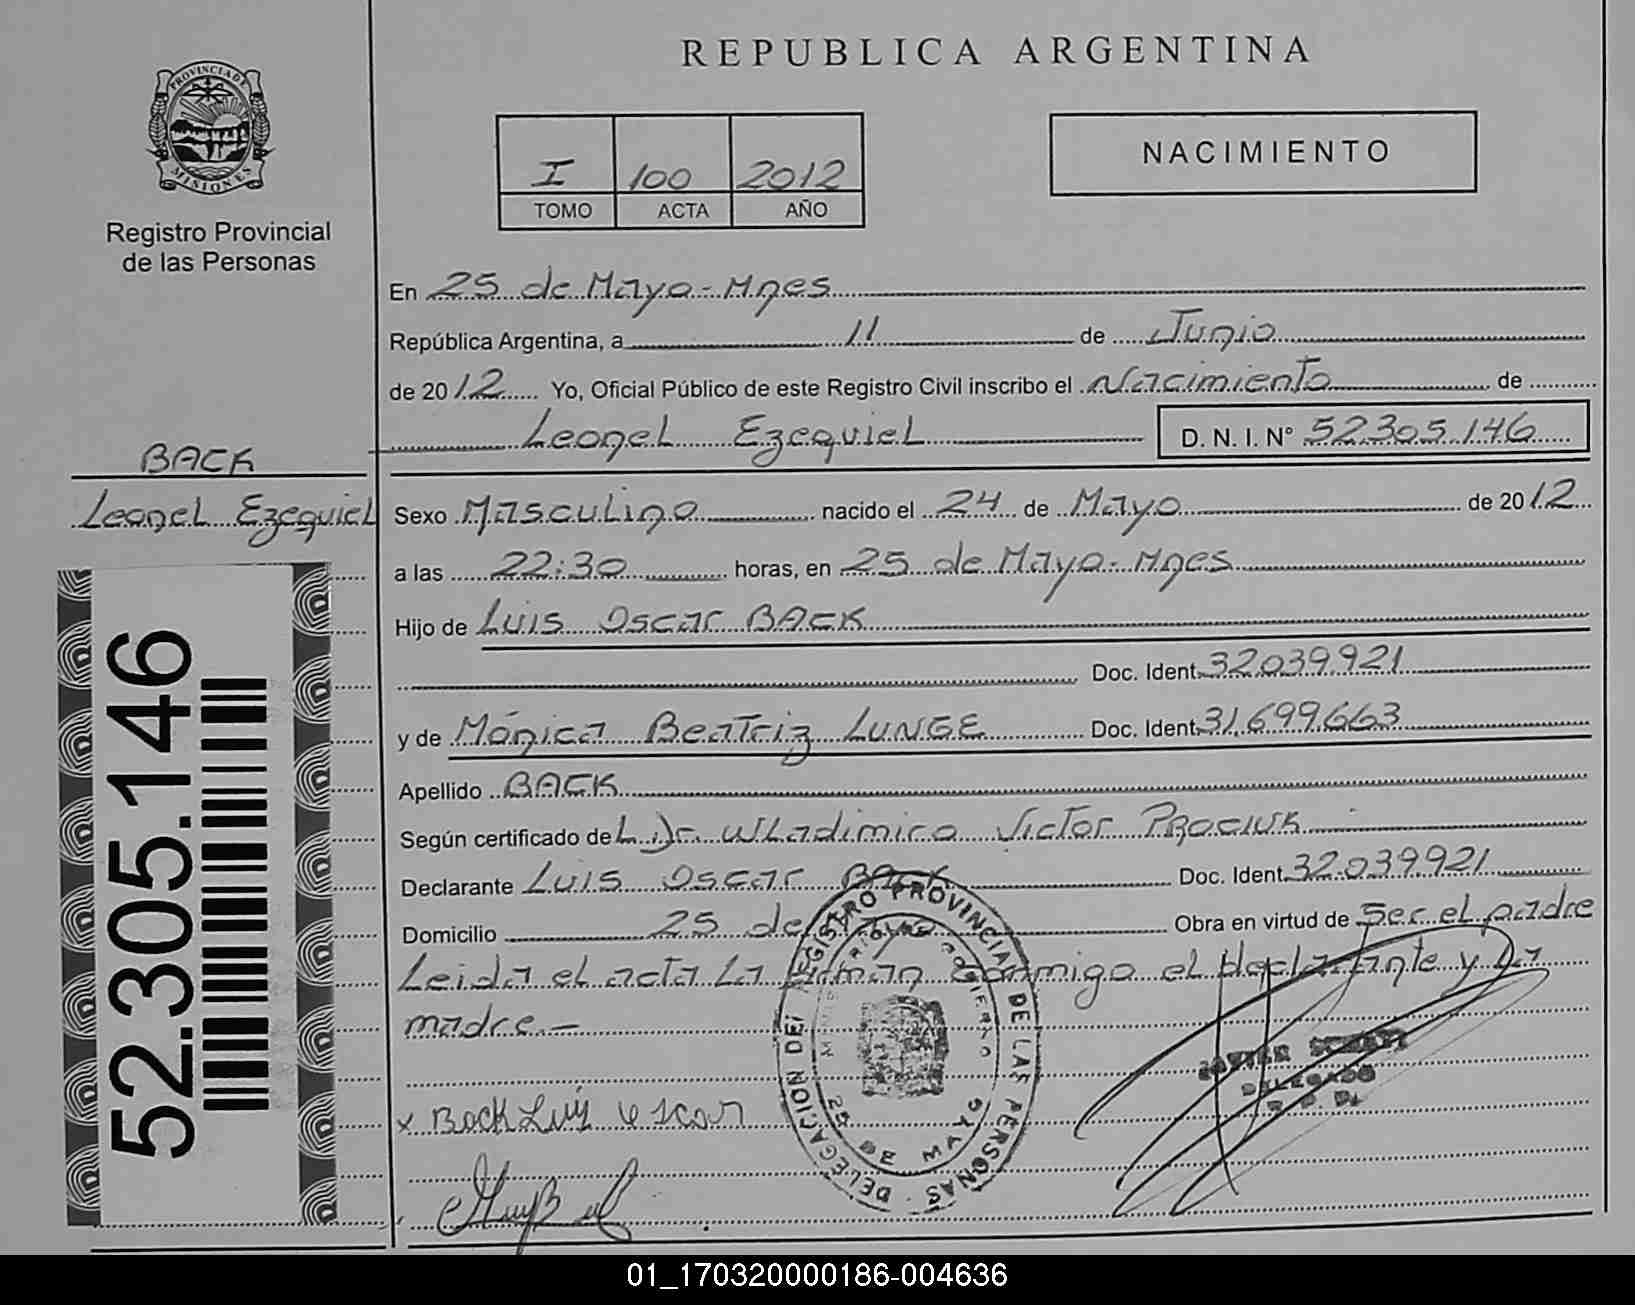 REPUBLICA ARGENTINA
PROVINCIA DE
MISIONES
Registro Provincial
de las Personas
I 100 2012
TOMO ACTA AÑO
NACIMIENTO
En 25 de Mayo - Mnes
República Argentina, a 11 de Junio
de 2012 Yo, Oficial Público de este Registro Civil inscribo el Nacimiento de
Leonel Ezequiel D. N. I. N° 52.305.146
BACK
Leonel Ezequiel
52.305.146
Sexo Masculino nacido el 24 de Mayo de 2012
a las 22:30 horas, en 25 de Mayo - Mnes
Hijo de Luis Oscar BACK
Doc. Ident. 32.039.921
y de Mónica Beatriz LUNGE Doc. Ident. 31.699.663
Apellido BACK
Según certificado del Dr. Wladimiro Victor PROCIUK
Declarante Luis Oscar BACK Doc. Ident. 32.039.921
Domicilio 25 de Mayo Obra en virtud de Ser el padre
Leida el acta La firman Conmigo el declarante y La
madre.-
x Back Luis Oscar
DELEGACION DEL REGISTRO PROVINCIAL DE LAS PERSONAS
25 DE MAYO
DELEGADO
01_170320000186-004636